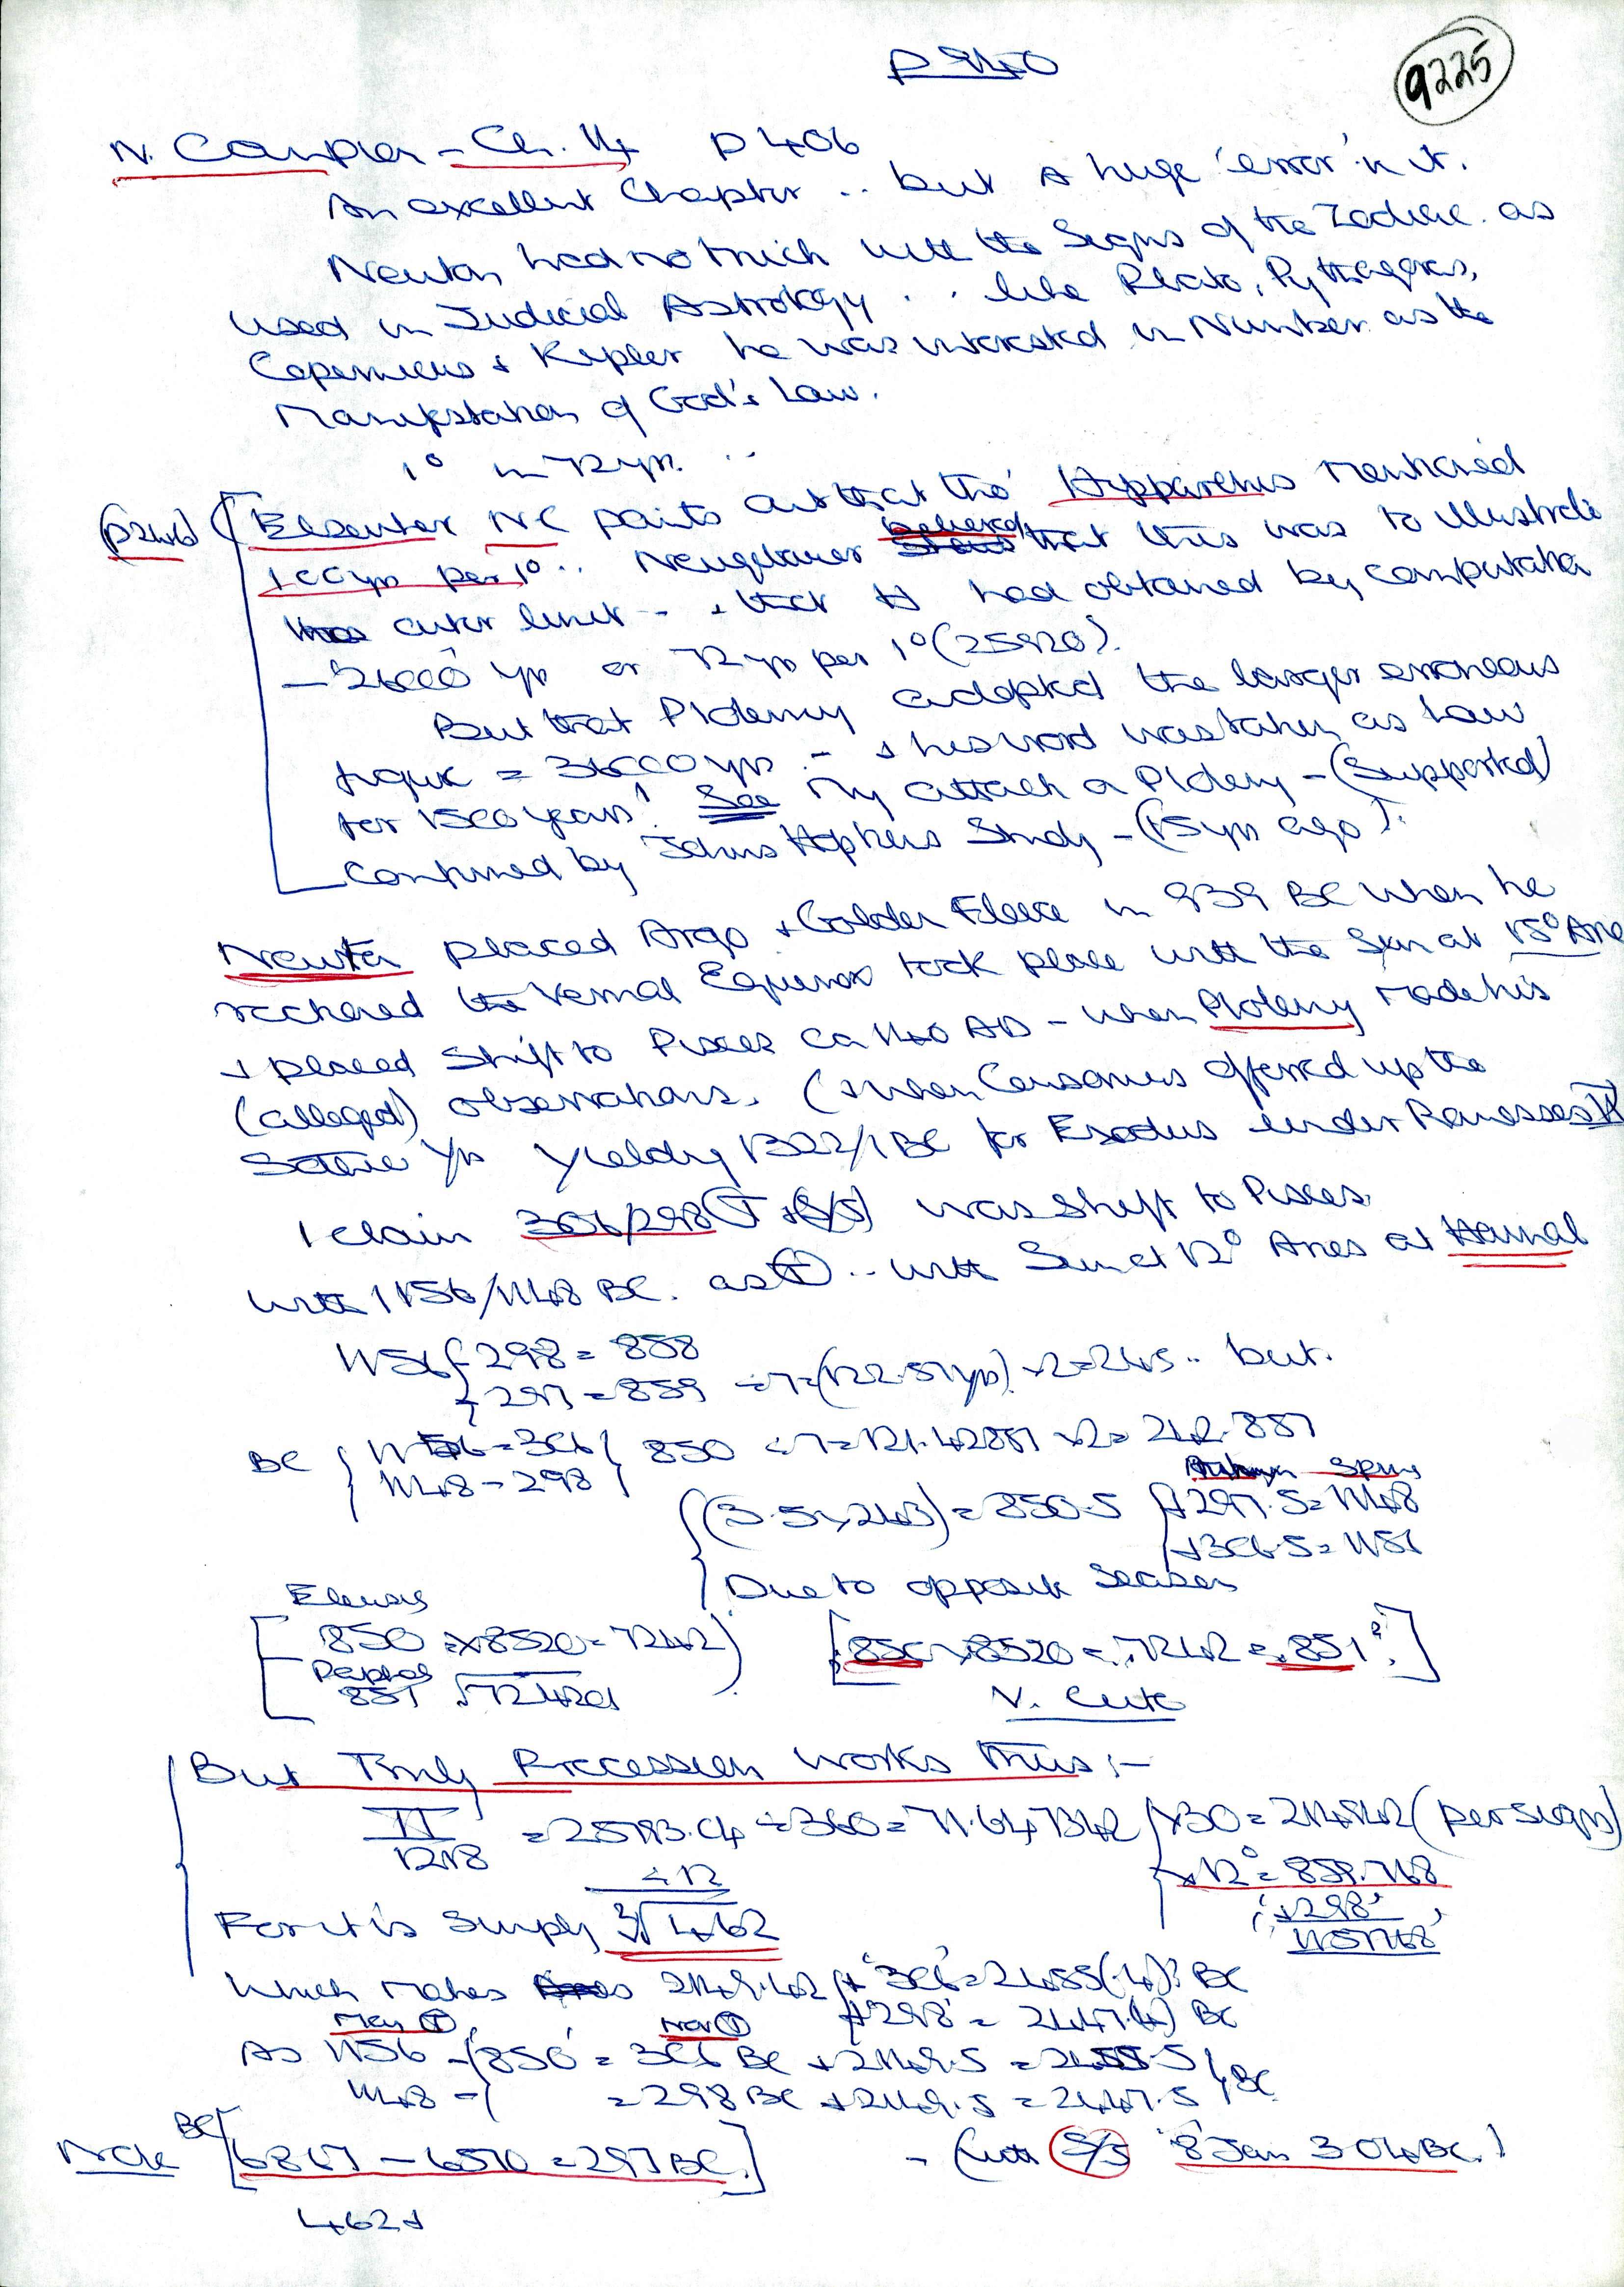 P 940
9225
N. Campion - Ch. 14 P 406
An excellent Chapter .. but a huge 'error' in it.
Newton had no truck with the Signs of the Zodiac. as
used in Judicial Astrology .. like Plato, Pythagoras,
Copernicus + Kepler he was interested in Number as the
Manifestation of God's Law.
1° in 72 yrs. ..
(P246) [Elsewhere NC points out that the Hipparchus mentioned
100 yrs per 1° .. Neugebauer believed that this was to illustrate
outer limit - + that H had obtained by computation
- 26000 yrs or 72 yrs per 1° (25920).
But that Ptolemy adopted the larger erroneous
figure = 36000 yrs - + his word was taken as Law
for 1500 years! See My attack on Ptolemy - (Supported)
Confirmed by Johns Hopkins Study - (15 yrs ago).
Newton placed Argo + Golden Fleece in 939 BC when he
reckoned the Vernal Equinox took place with the Sun at 15° Aries
+ placed Shift to Pisces ca 140 AD - when Ptolemy made his
(alleged) observations. (+ when Censorinus offered up the
Sothic Yr yielding 1322/1 BC for Exodus under Ramesses
I claim 306/298 (T + S/S) was shift to Pisces.
with 1156/1148 BC. as T .. with Sun at 12° Aries at Hamal
1156 { - 298 = 858
- 297 = 859 ÷ 7 = (122.51 yrs) x 2 = 245 .. but.
BC { 1156 - 306 } 850 ÷ 7 = 121.42857 x 2 = 242.857
1148 - 298
Autumn Spring
{ (3.5 x 243) = 850.5 { + 297.5 = 1148
+ 306.5 = 1156
Due to opposite Seasons
Eleusis
[ 850 x 8520 = 7242 ) [ .850 x 8520 = .7242 = .851²? ]
Peplos
851 √724201
V. Cute
But Truly Precession works thus :-
π/1218 = 25793.04 ÷ 360 = 71.647342 { x 30 = 2149.42 (per sign)
÷ 12 x 12° = 859.768
For it is simply ³√462 '+ 298'
1157.768
Which makes 2149.42 { + '306' = 2455(.4)? BC
+ '298' = 2447.(4) BC
May T Nov T
As 1156 - (850' = 306 BC + 2149.5 = 2455.5 } BC
1148 - ( = 298 BC + 2149.5 = 2447.5
Note BC [6867 - 6570 = 297 BC.] - (with S/S '8' Jan 304 BC.)
462 x